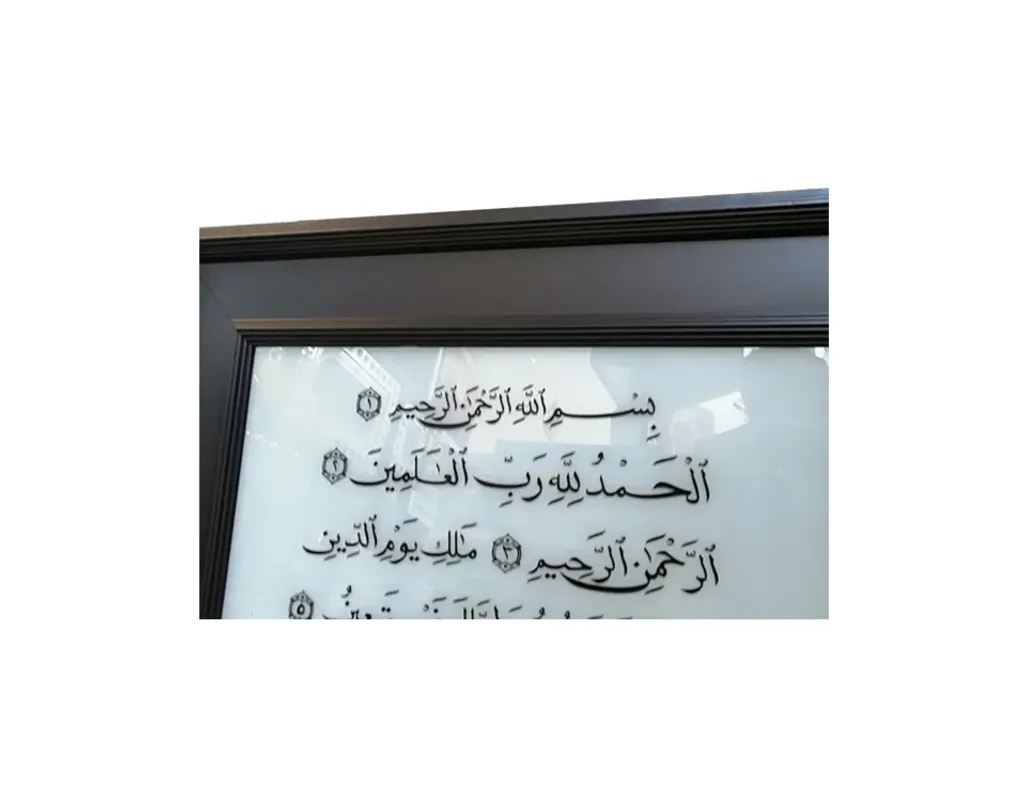 بِسْمِ ٱللَّهِ ٱلرَّحْمَٰنِ ٱلرَّحِيمِ ١
ٱلْحَمْدُ لِلَّهِ رَبِّ ٱلْعَٰلَمِينَ ٢
ٱلرَّحْمَٰنِ ٱلرَّحِيمِ ٣ مَٰلِكِ يَوْمِ ٱلدِّينِ
٥